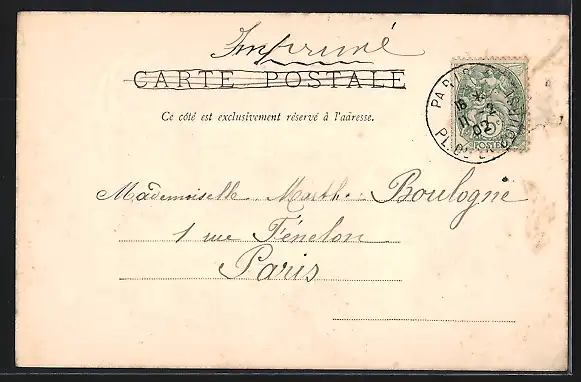 Imprimé
CARTE POSTALE
Ce côté est exclusivement réservé à l'adresse.
PARIS
18
11 -2
02
PL. DE LA
5c
POSTES
Mademoiselle Marthe Boulogne
1 rue Fénelon
Paris